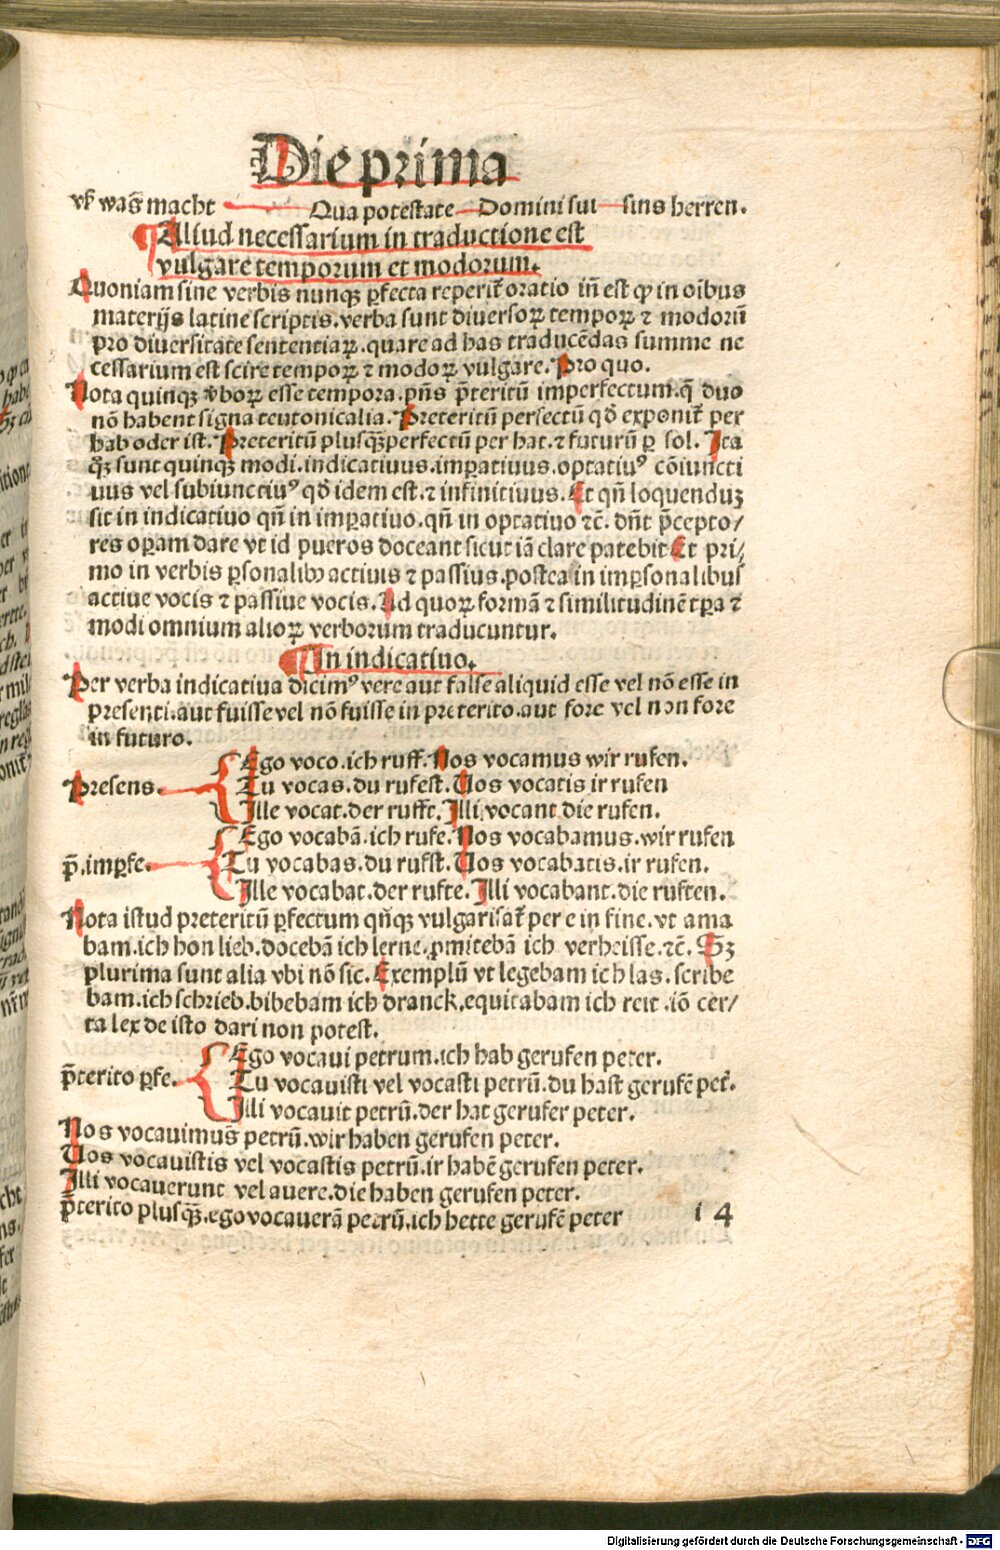 Die prima
vß was̄ macht Qua potestate Domini sui sins herren.
¶ Aliud necessarium in traductione est
vulgare temporum et modorum.
Quoniam sine verbis nunqꝫ ꝑfecta reperit᷑ oratio in̄ est ꝙ in oībus
materijs latine scriptis.verba sunt diuersoꝝ tempoꝝ ⁊ modorū
pro diuersitate sententiaꝝ.quare ad has traducēdas summe ne
cessarium est scire tempoꝝ ⁊ modoꝝ vulgare. Pro quo.
Nota quinqꝫ v̄boꝝ esse tempora.pn̄s p̄teritū imperfectum.q̄ duo
nō habent signa teutonicalia. Preteritū perfectū qd̄ exponit᷑ per
hab oder ist. Preteritū plusqꝫ̄perfectū per hat.⁊ futurū ꝑ sol. Ita
qꝫ̄ sunt quinqꝫ modi.indicatiuus.imꝑatiuus.optatiuꝰ cōiuncti
uus vel subiunctiuꝰ qd̄ idem est.⁊ infinitiuus. Et qn̄ loquenduꝫ
sit in indicatiuo qn̄ in imꝑatiuo.qn̄ in optatiuo ⁊c̄. dn̄t p̄cepto/
res oꝑam dare vt id pueros doceant sicut iā clare patebit Et pri/
mo in verbis ꝑsonalibꝫ actiuis ⁊ passius.postea in imꝑsonalibus
actiue vocis ⁊ passiue vocis. Ad quoꝝ formā ⁊ similitudinē tꝑa ⁊
modi omnium alioꝝ verborum traducuntur.
¶ In indicatiuo.
Per verba indicatiua dicimꝰ vere aut false aliquid esse vel nō esse in
presenti.aut fuisse vel nō fuisse in preterito.aut fore vel non fore
in futuro.
Ego voco.ich ruff. Nos vocamus wir rufen.
Presens. Tu vocas.du rufest. Uos vocatis ir rufen
Ille vocat.der rufft. Illi vocant die rufen.
Ego vocabā.ich rufe. Nos vocabamus.wir rufen
p̄.imꝑfe. Tu vocabas.du rufst. Uos vocabatis.ir rufen.
Ille vocabat.der rufte. Illi vocabant.die ruften.
Nota istud preteritū ꝑfectum qn̄qꝫ vulgarisat᷑ per e in fine.vt ama
bam.ich hon lieb.docebā ich lerne.ꝓmitebā ich verheisse.⁊c̄. Sꝫ
plurima sunt alia vbi nō sic. Exemplū vt legebam ich las.scribe
bam.ich schrieb.bibebam ich dranck.equitabam ich reit.iō cer/
ta lex de isto dari non potest.
Ego vocaui petrum.ich hab gerufen peter.
p̄terito ꝑfe. Tu vocauisti vel vocasti petrū.du hast gerufē pet᷑.
Illi vocauit petrū.der hat gerufer peter.
Nos vocauimus̄ petrū.wir haben gerufen peter.
Uos vocauistis vel vocastis petrū.ir habē gerufen peter.
Illi vocauerunt vel auere.die haben gerufen peter.
p̄terito plusqꝫ̄.ego vocauerā petrū.ich hette gerufē peter 14
Digitalisierung gefördert durch die Deutsche Forschungsgemeinschaft - DFG